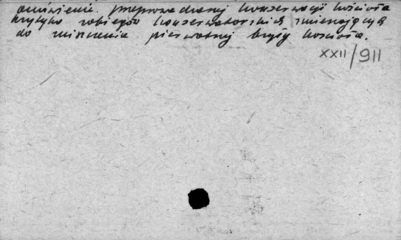 omówienie przeprowadzonej konserwacji kościoła
krytyka zabiegów konserwatorskich zmierzających
do zniszczenia pierwotnej bryły kościoła.
XXII/911